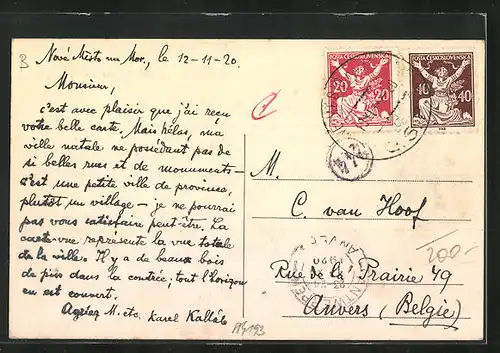 Nové Město na Mor., le 12-11-20.
Monsieur,
c'est avec plaisir que j'ai reçu
votre belle carte. Mais hélas, ma
ville natale ne possédant pas de
si belles rues et de monuments -
c'est une petite ville de province,
plutôt un village - je ne pourrai
pas vous satisfaire peut-être. La
carte-vue représente la vue totale
de la ville. Il y a de beaux bois
de pins dans la contrée, tout l'horizon
en est couvert.
Agréez M. etc. Karel
POŠTA ČESKOSLOVENSKÁ
20 20
POŠTA ČESKOSLOVENSKÁ
40 40
M.
C. van Hoof
Rue de la Prairie 49
Anvers (Belgie)
200-